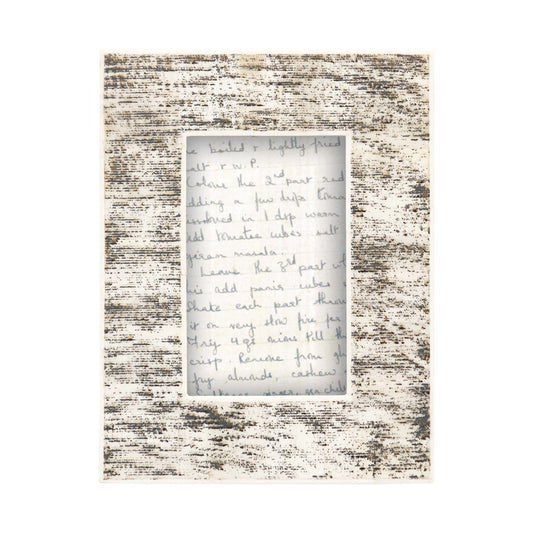 e boiled & lightly fried
alt & w.P.
Colour the 2nd part red
dding a few drps
in 1 dsp warm
dd tomatoe cubes salt
garam masala.
Leave the 3rd part
add panir cubes
Shake each part
it on very slow fire for
Fry 4 onions till th
crisp. Remove from
fry almonds, cashew